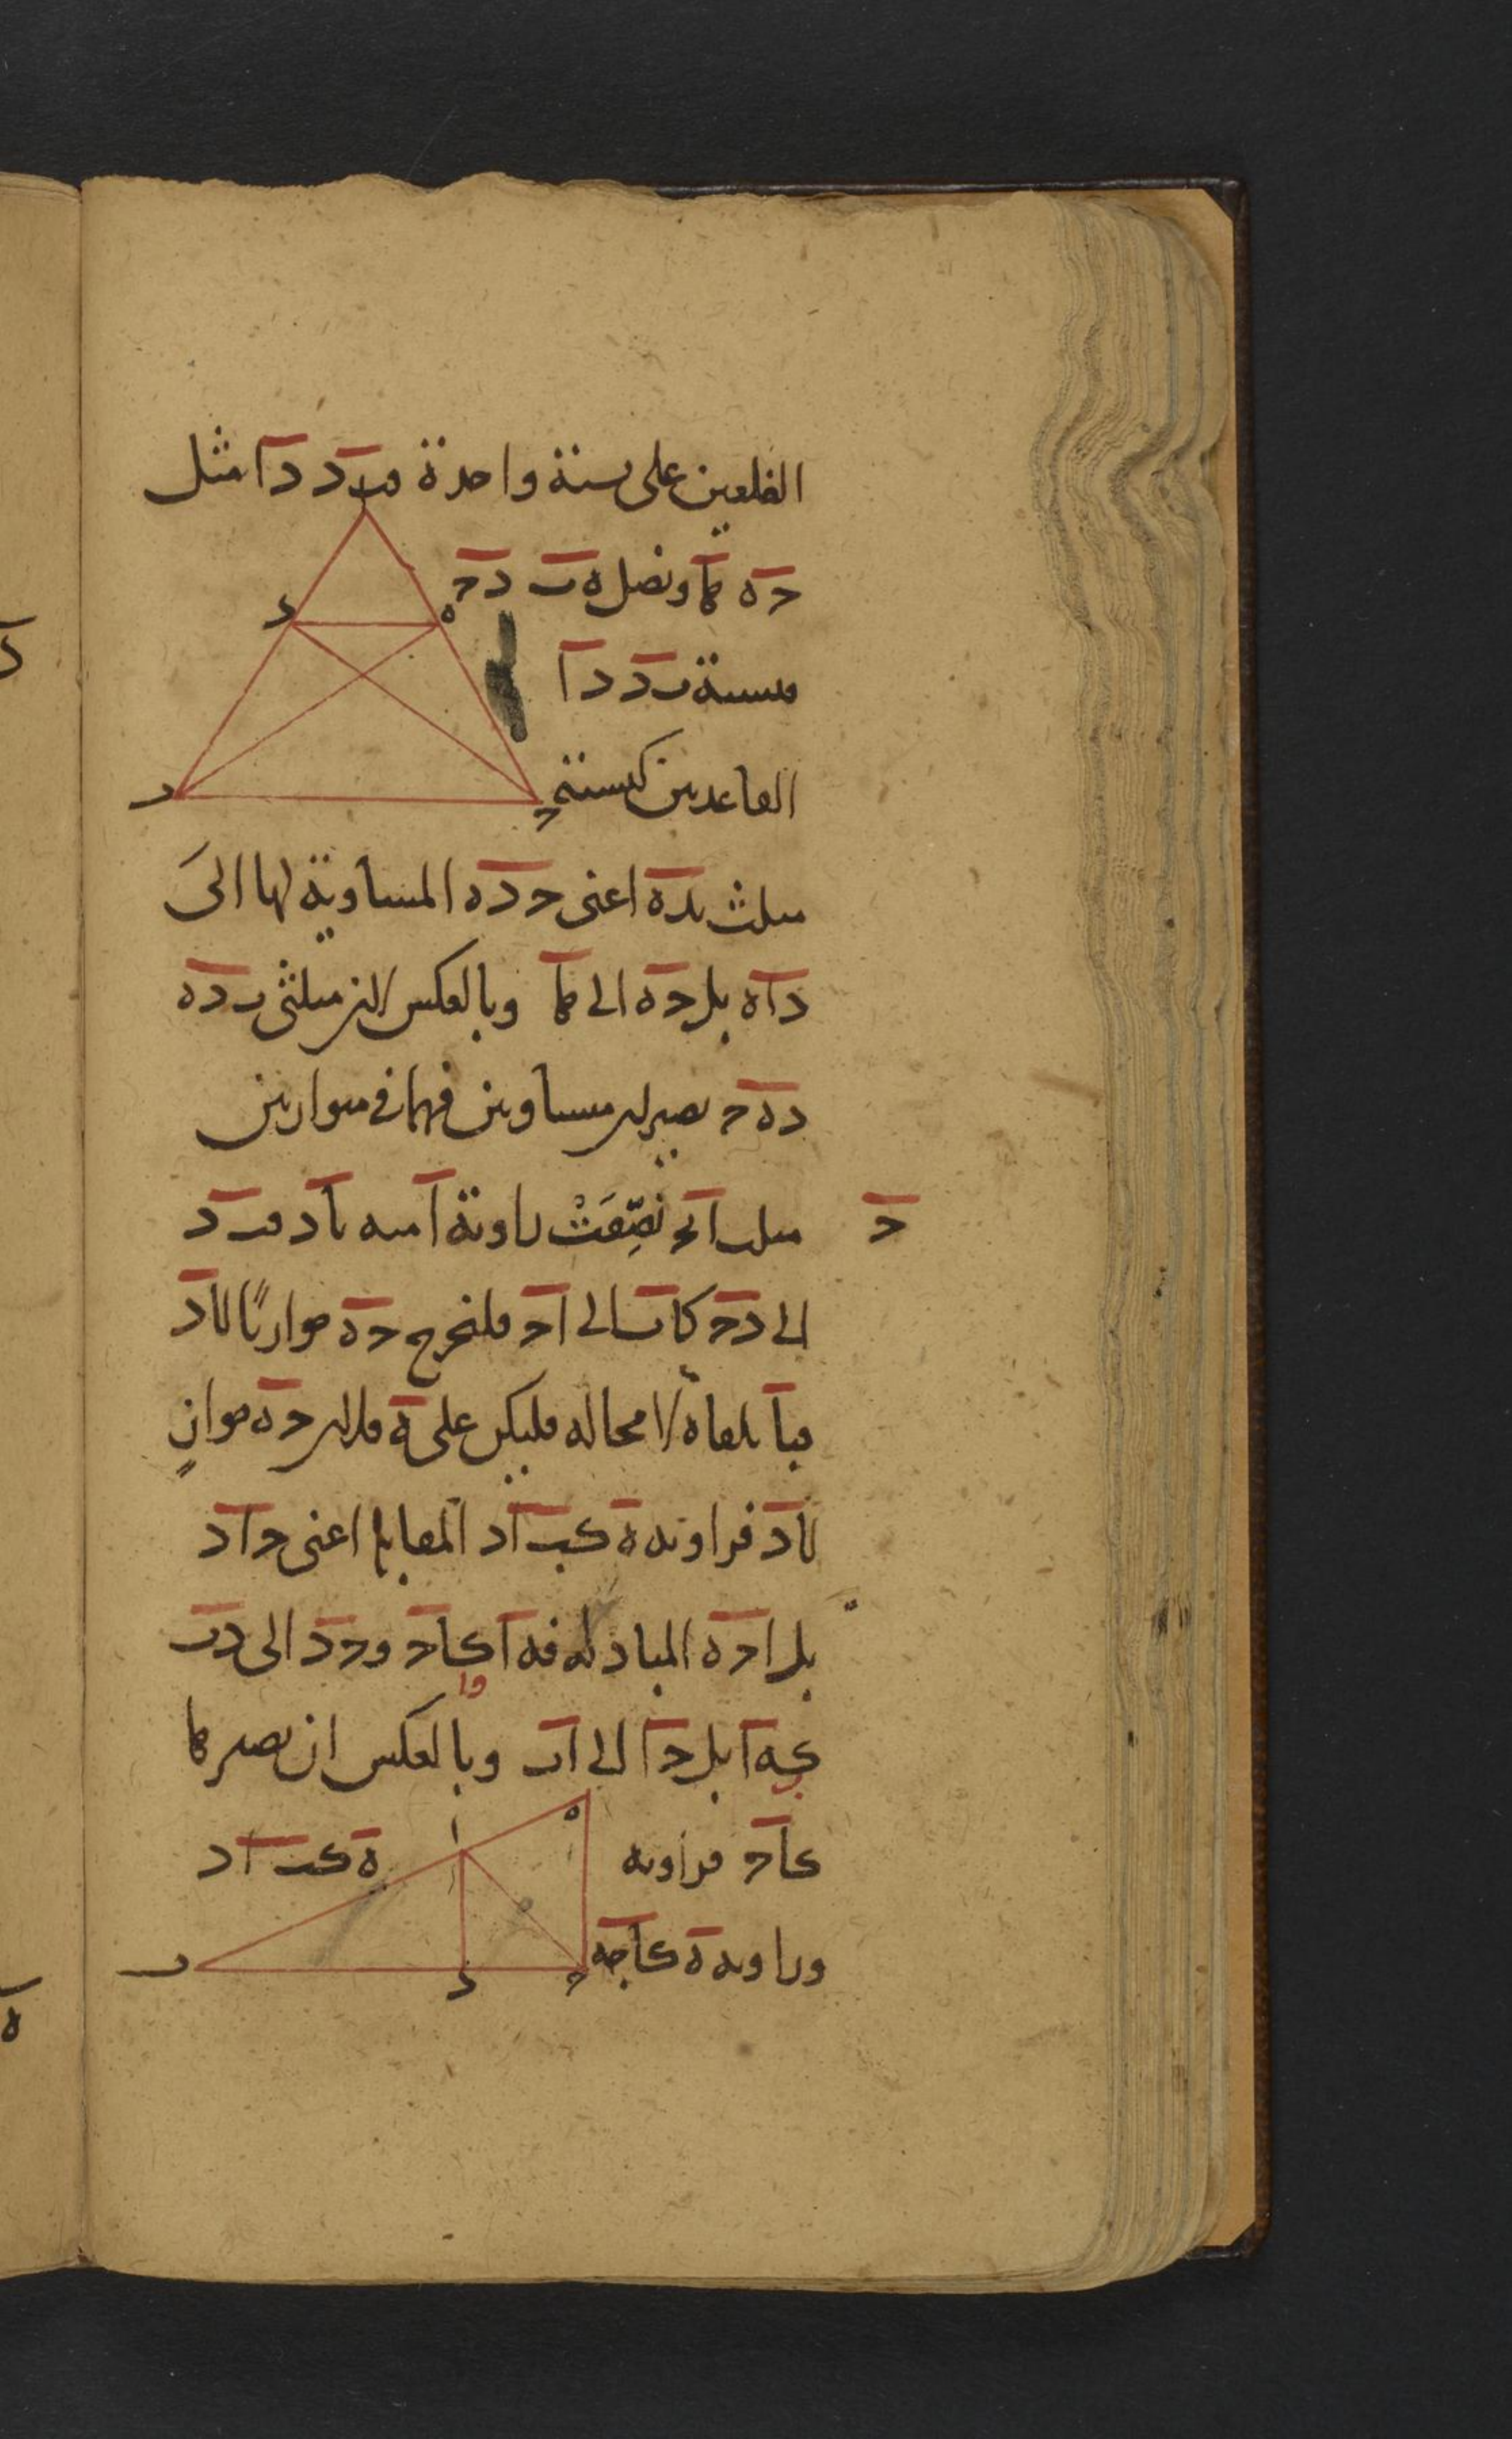 الضلعين على نسبة واحدة فب د د ا مثل
ح ه ه ا ونصل ه ب د ح
فنسبة ب د د ا
القاعدتين كنسبة
مثلث ب د ه اعنى ح د ه المساوية لها الى
د ا ه بل ح ه الى ه ا وبالعكس لان مثلثى ب د ه
د ه ح يصيران متساويين فهما فى متوازيين
ح
مثلث ا ب ح نصفت زاوية ا منه با د فب د
الى د ح كا ب الى ا ح فلنخرج ح ه موازيا لا د
فب ا يلقاه لا محالة فليكن على ه فلان ح ه مواز
لا د فزاوية ه كب ا د المقابلة اعنى ح ا د
بل ا ح ه المبادلة فه ا كا ح وح د الى د ب
كه ا بل ح ا الى ا ب وبالعكس ان يصير ه ا
كا ح فزاوية ه كب ا د
وزاوية ه كا ح ه
ا
د
ه
ب
ح
ا
ه
ب
د
ح